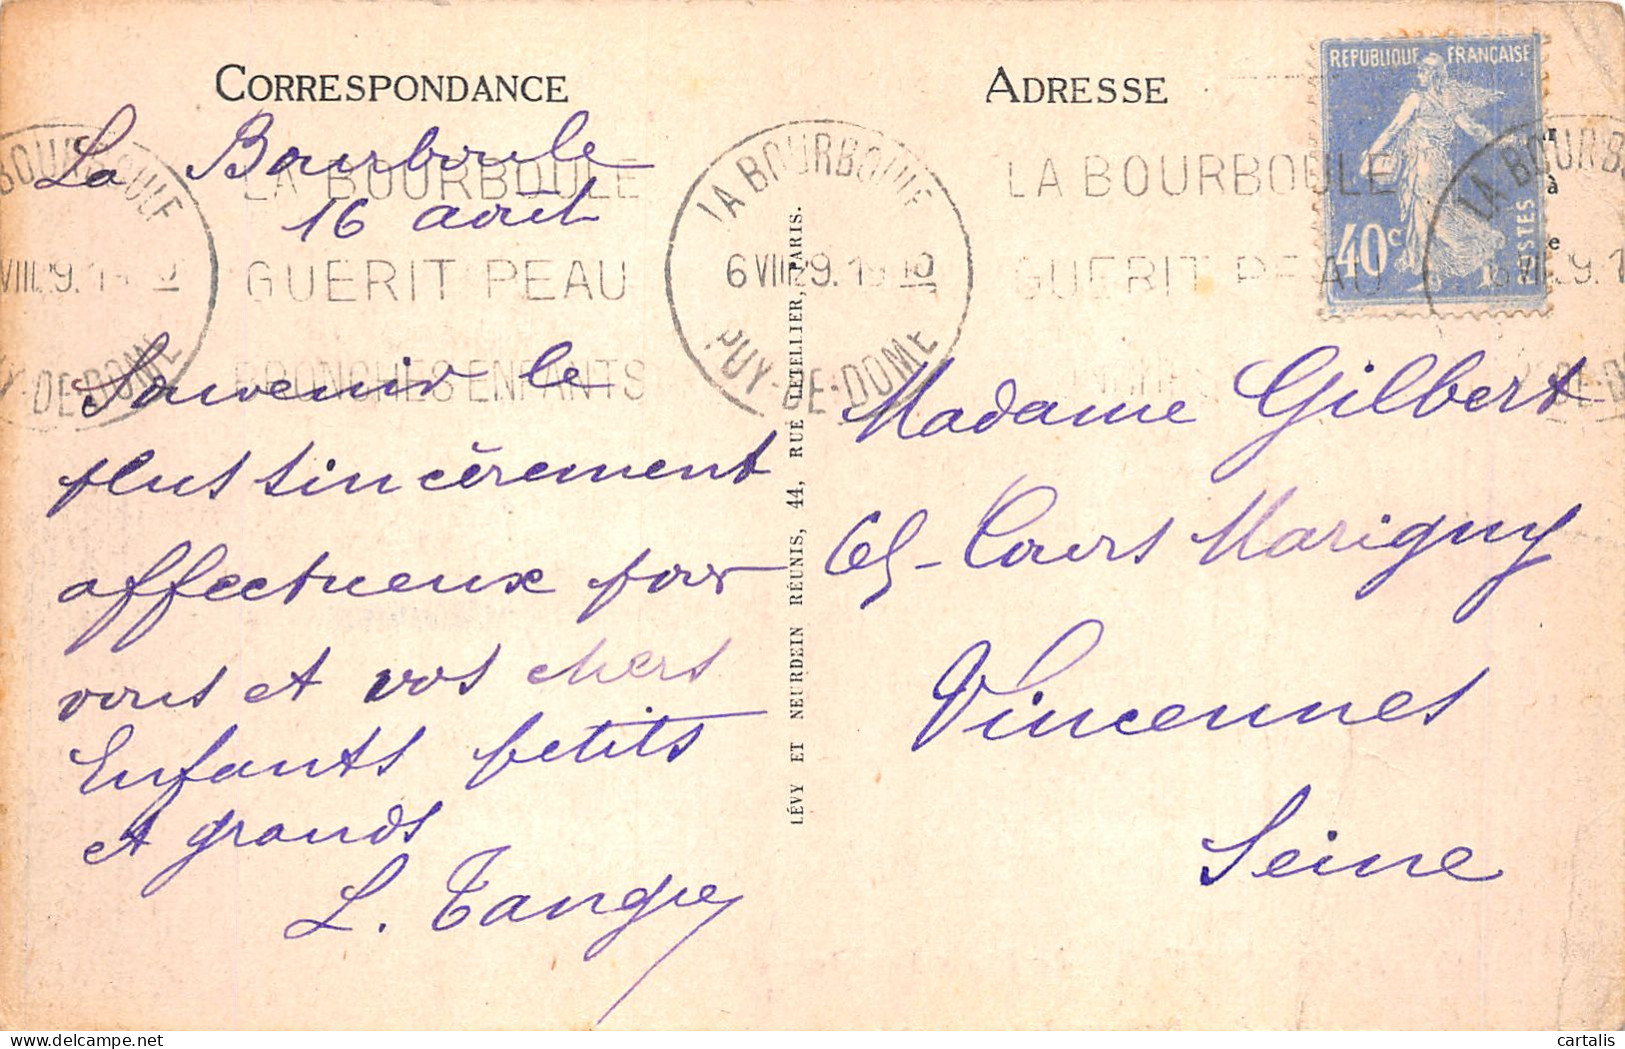 CORRESPONDANCE
La Bourboule
16 août
Souvenir le
plus sincèrement
affectueux pour
vous et vos chers
Enfants petits
et grands
L. Tangre
LÉVY ET NEURDEIN RÉUNIS, 44, RUE LETELLIER, PARIS.
LA BOURBOULE
GUERIT PEAU
BRONCHES ENFANTS
LA BOURBOULE
6 VIII 29.
PUY-DE-DOME
ADRESSE
REPUBLIQUE FRANÇAISE
40c
POSTES
LA BOURBOULE
GUERIT PEAU
LA BOURBOU
Madame Gilbert
Cours Marigny
Vincennes
Seine
cartalis